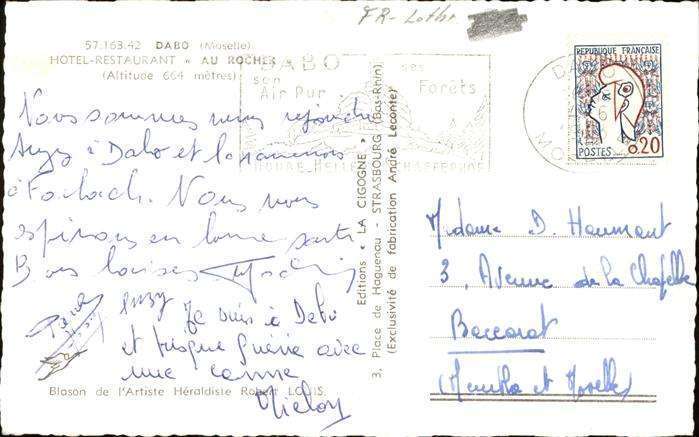 FR-Lothr
57.163.42 DABO (Moselle)
HOTEL-RESTAURANT « AU ROCHER
(Altitude 664 mètres)
DABO
son
Air Pur
ses
Forêts
REPUBLIQUE FRANÇAISE
POSTES 0,20
Nous sommes venus rejoindre
Suzy à Dabo et la
à Forbach. Nous vous
espérons en bonne santé
Bons baisers
Suzy
Je suis à Dabo
et avec
une canne
Blason de l'Artiste Héraldiste Robert LOUIS.
Editions " LA CIGOGNE "
3, Place de Haguenau - STRASBOURG (Bas-Rhin)
(Exclusivité de fabrication André Leconte)
Madame D. Haumant
3, Avenue de la Chapelle
Baccarat
(Meurthe et Moselle)